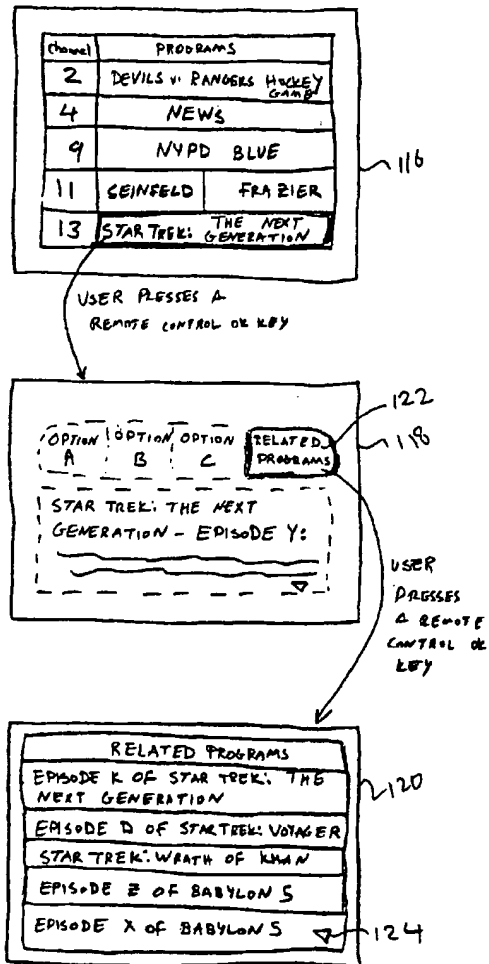 channel PROGRAMS
2 DEVILS v. RANGERS HOCKEY
GAME
4 NEWS
9 NYPD BLUE
116
11 SEINFELD FRAZIER
13 STAR TREK: THE NEXT
GENERATION
USER PRESSES A
REMOTE CONTROL OK KEY
122
118
OPTION OPTION OPTION RELATED
A B C PROGRAMS
STAR TREK: THE NEXT
GENERATION - EPISODE Y:
USER
PRESSES
A REMOTE
CONTROL OK
KEY
RELATED PROGRAMS
120
EPISODE K OF STAR TREK: THE
NEXT GENERATION
EPISODE D OF STAR TREK: VOYAGER
STAR TREK: WRATH OF KHAN
EPISODE Z OF BABYLON 5
EPISODE X OF BABYLON 5
124